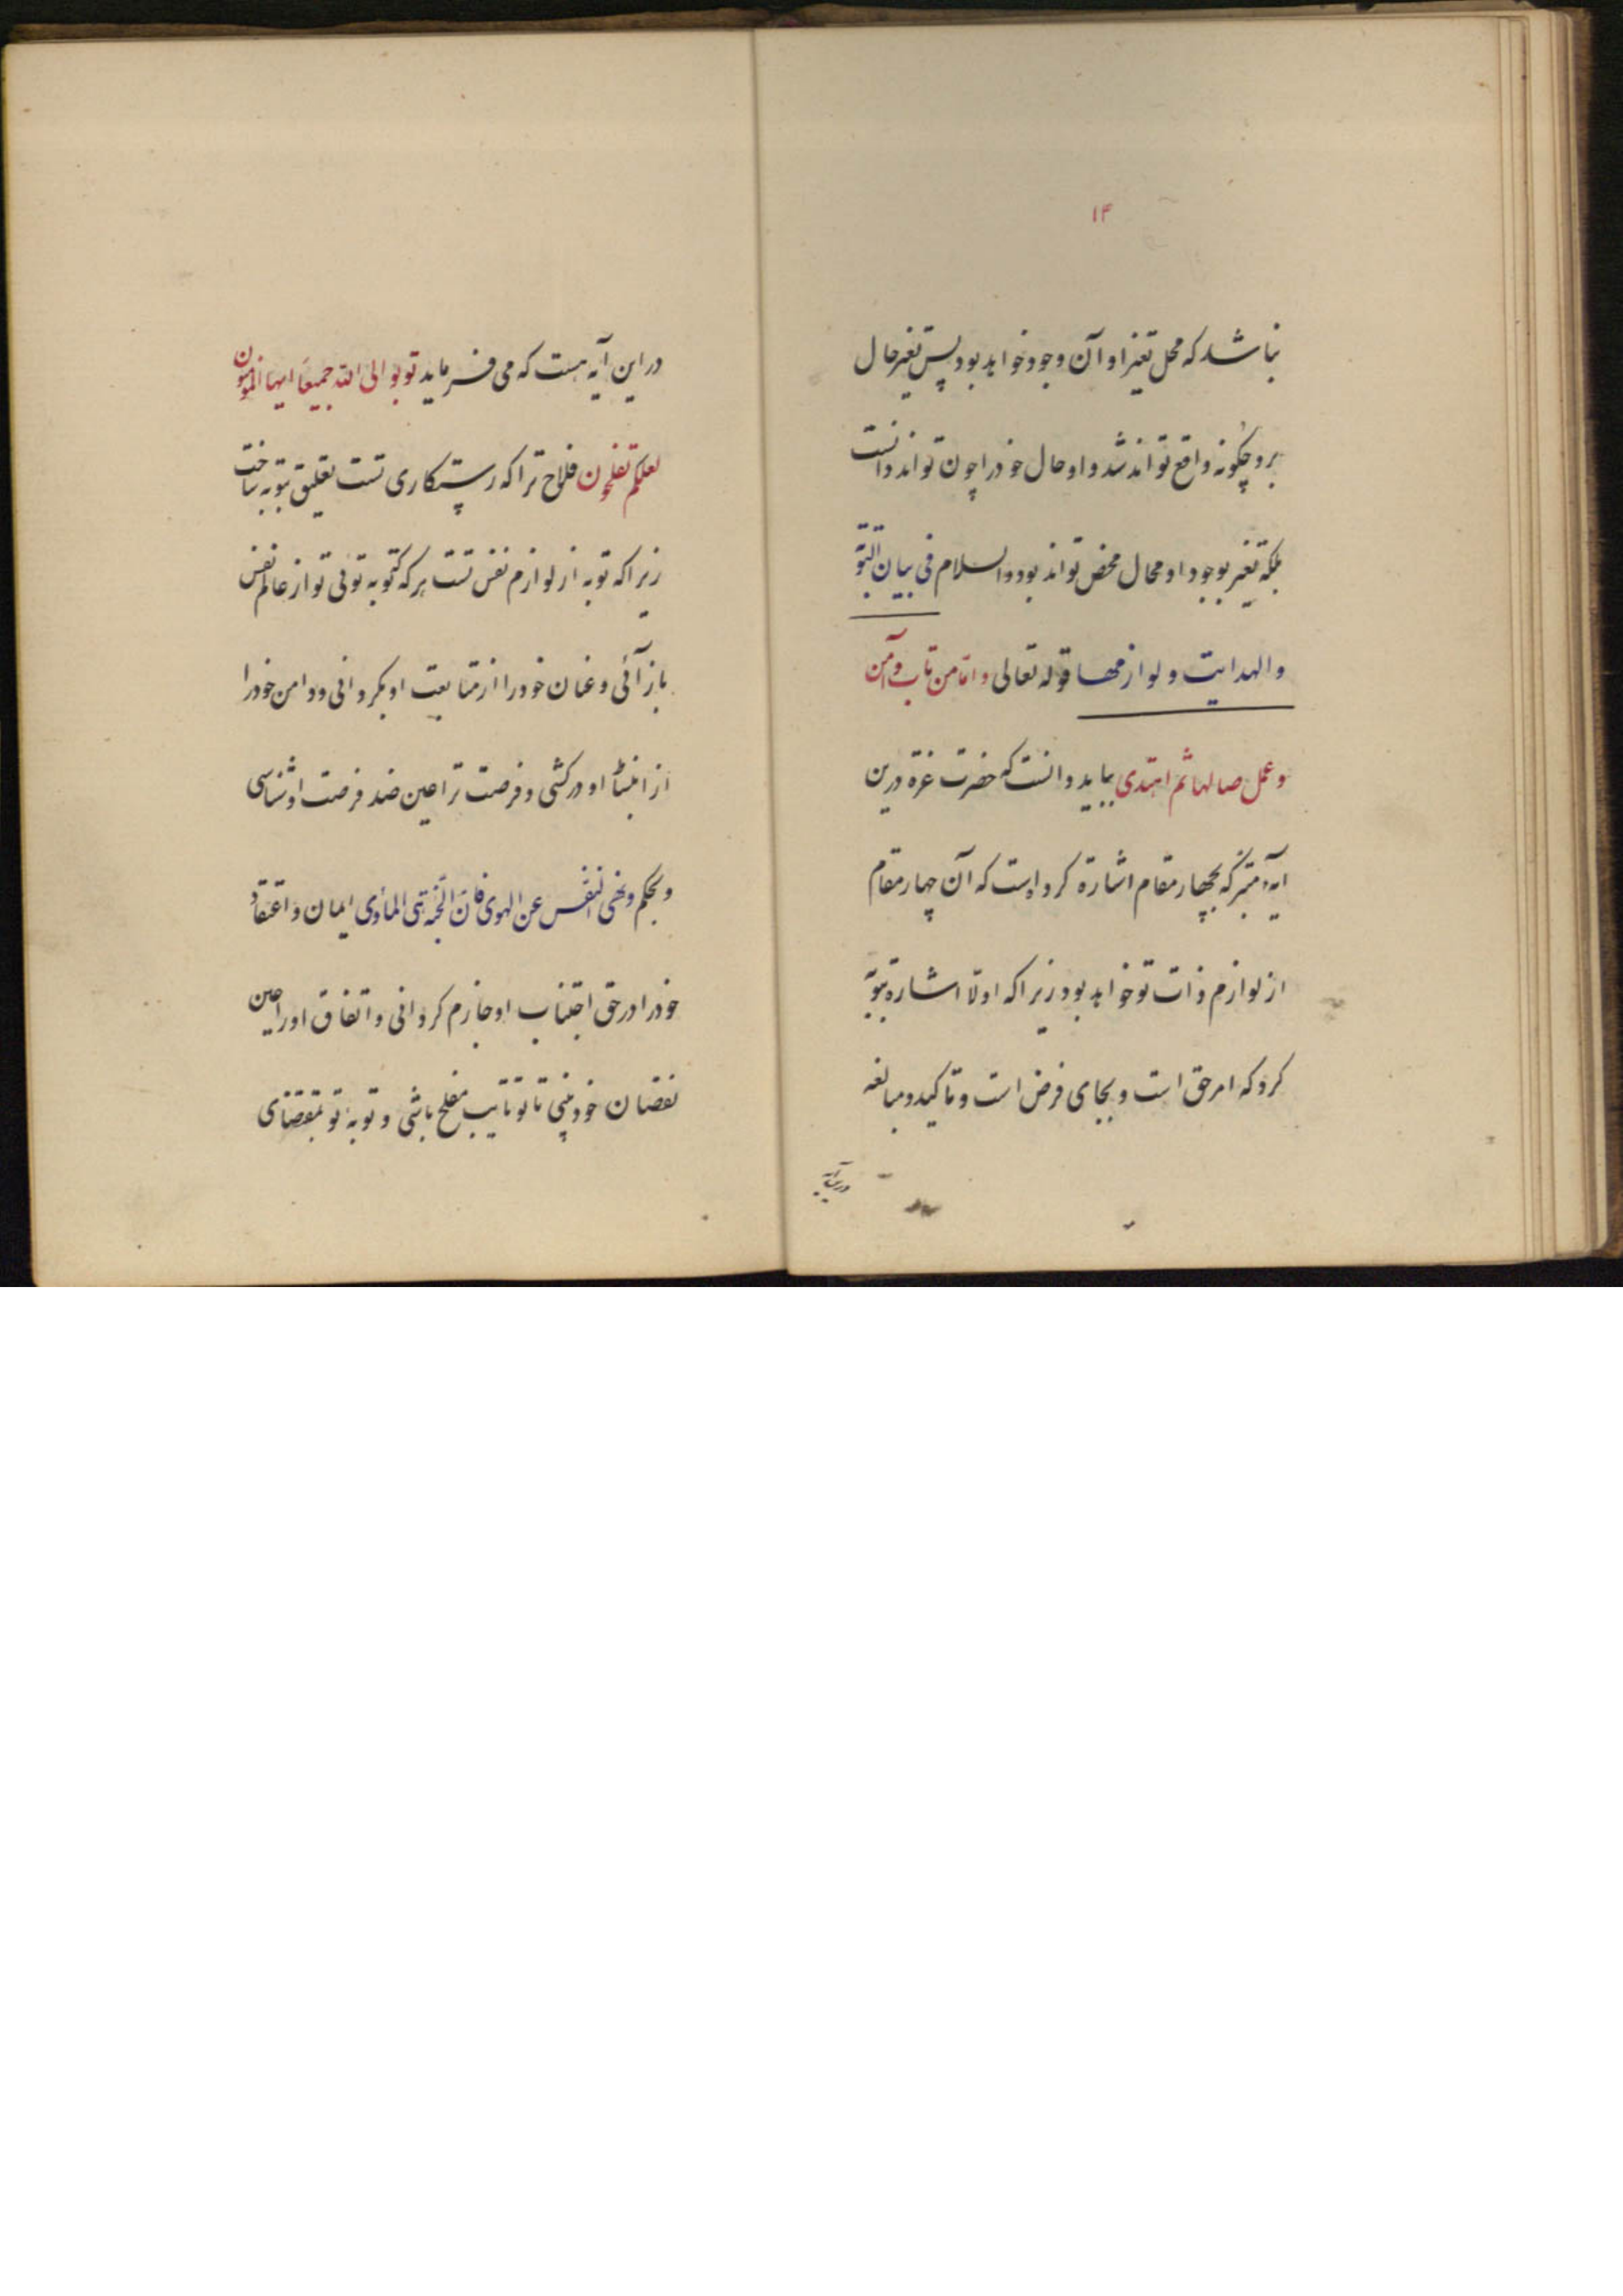 ۱۴
نباشد که محل تغیر او آن وجود خواهد بود پس تغیر حال
برو چگونه واقع تواند شد و او حال خود را چون تواند دانست
بلکه تغیر بوجود او محال محض تواند بود والسلام فی بیان التوبة
والهدایت و لوازمها قوله تعالی و امّا من تاب و آمن
و عمل صالها ثم اهتدی بباید دانست که حضرت عزة درین
ایهٔ متبرکه بچهار مقام اشارة کرده است که آن چهار مقام
از لوازم ذات تو خواهد بود زیرا که اولا اشاره بتوبة
کرد که امر حق است و بجای فرض است و تاکید و مبالغه
در این آیه
در این آیه هست که می فرماید توبوا الی الله جمیعًا ایها المؤمنون
لعلکم تفلحون فلاح ترا که رستکاری تست تعلیق بتوبه ساخت
زیرا که توبه از لوازم نفس تست هر که که توبه توئی تو از عالم نفس
باز آئی و عنان خود را از متابعت او بگردانی و دامن خود را
از او درکشی و فرصت ترا عین ضد فرصت او شناسی
و بحکم و نهی النفس عن الهوی فانّ الجنّة هی المأوی ایمان و اعتقاد
خود را در حق اجتناب او جازم کردانی و اتفاق او را عین
نقصان خود بینی تا تو تایب مفلح باشی و توبهٔ تو بمقتضای